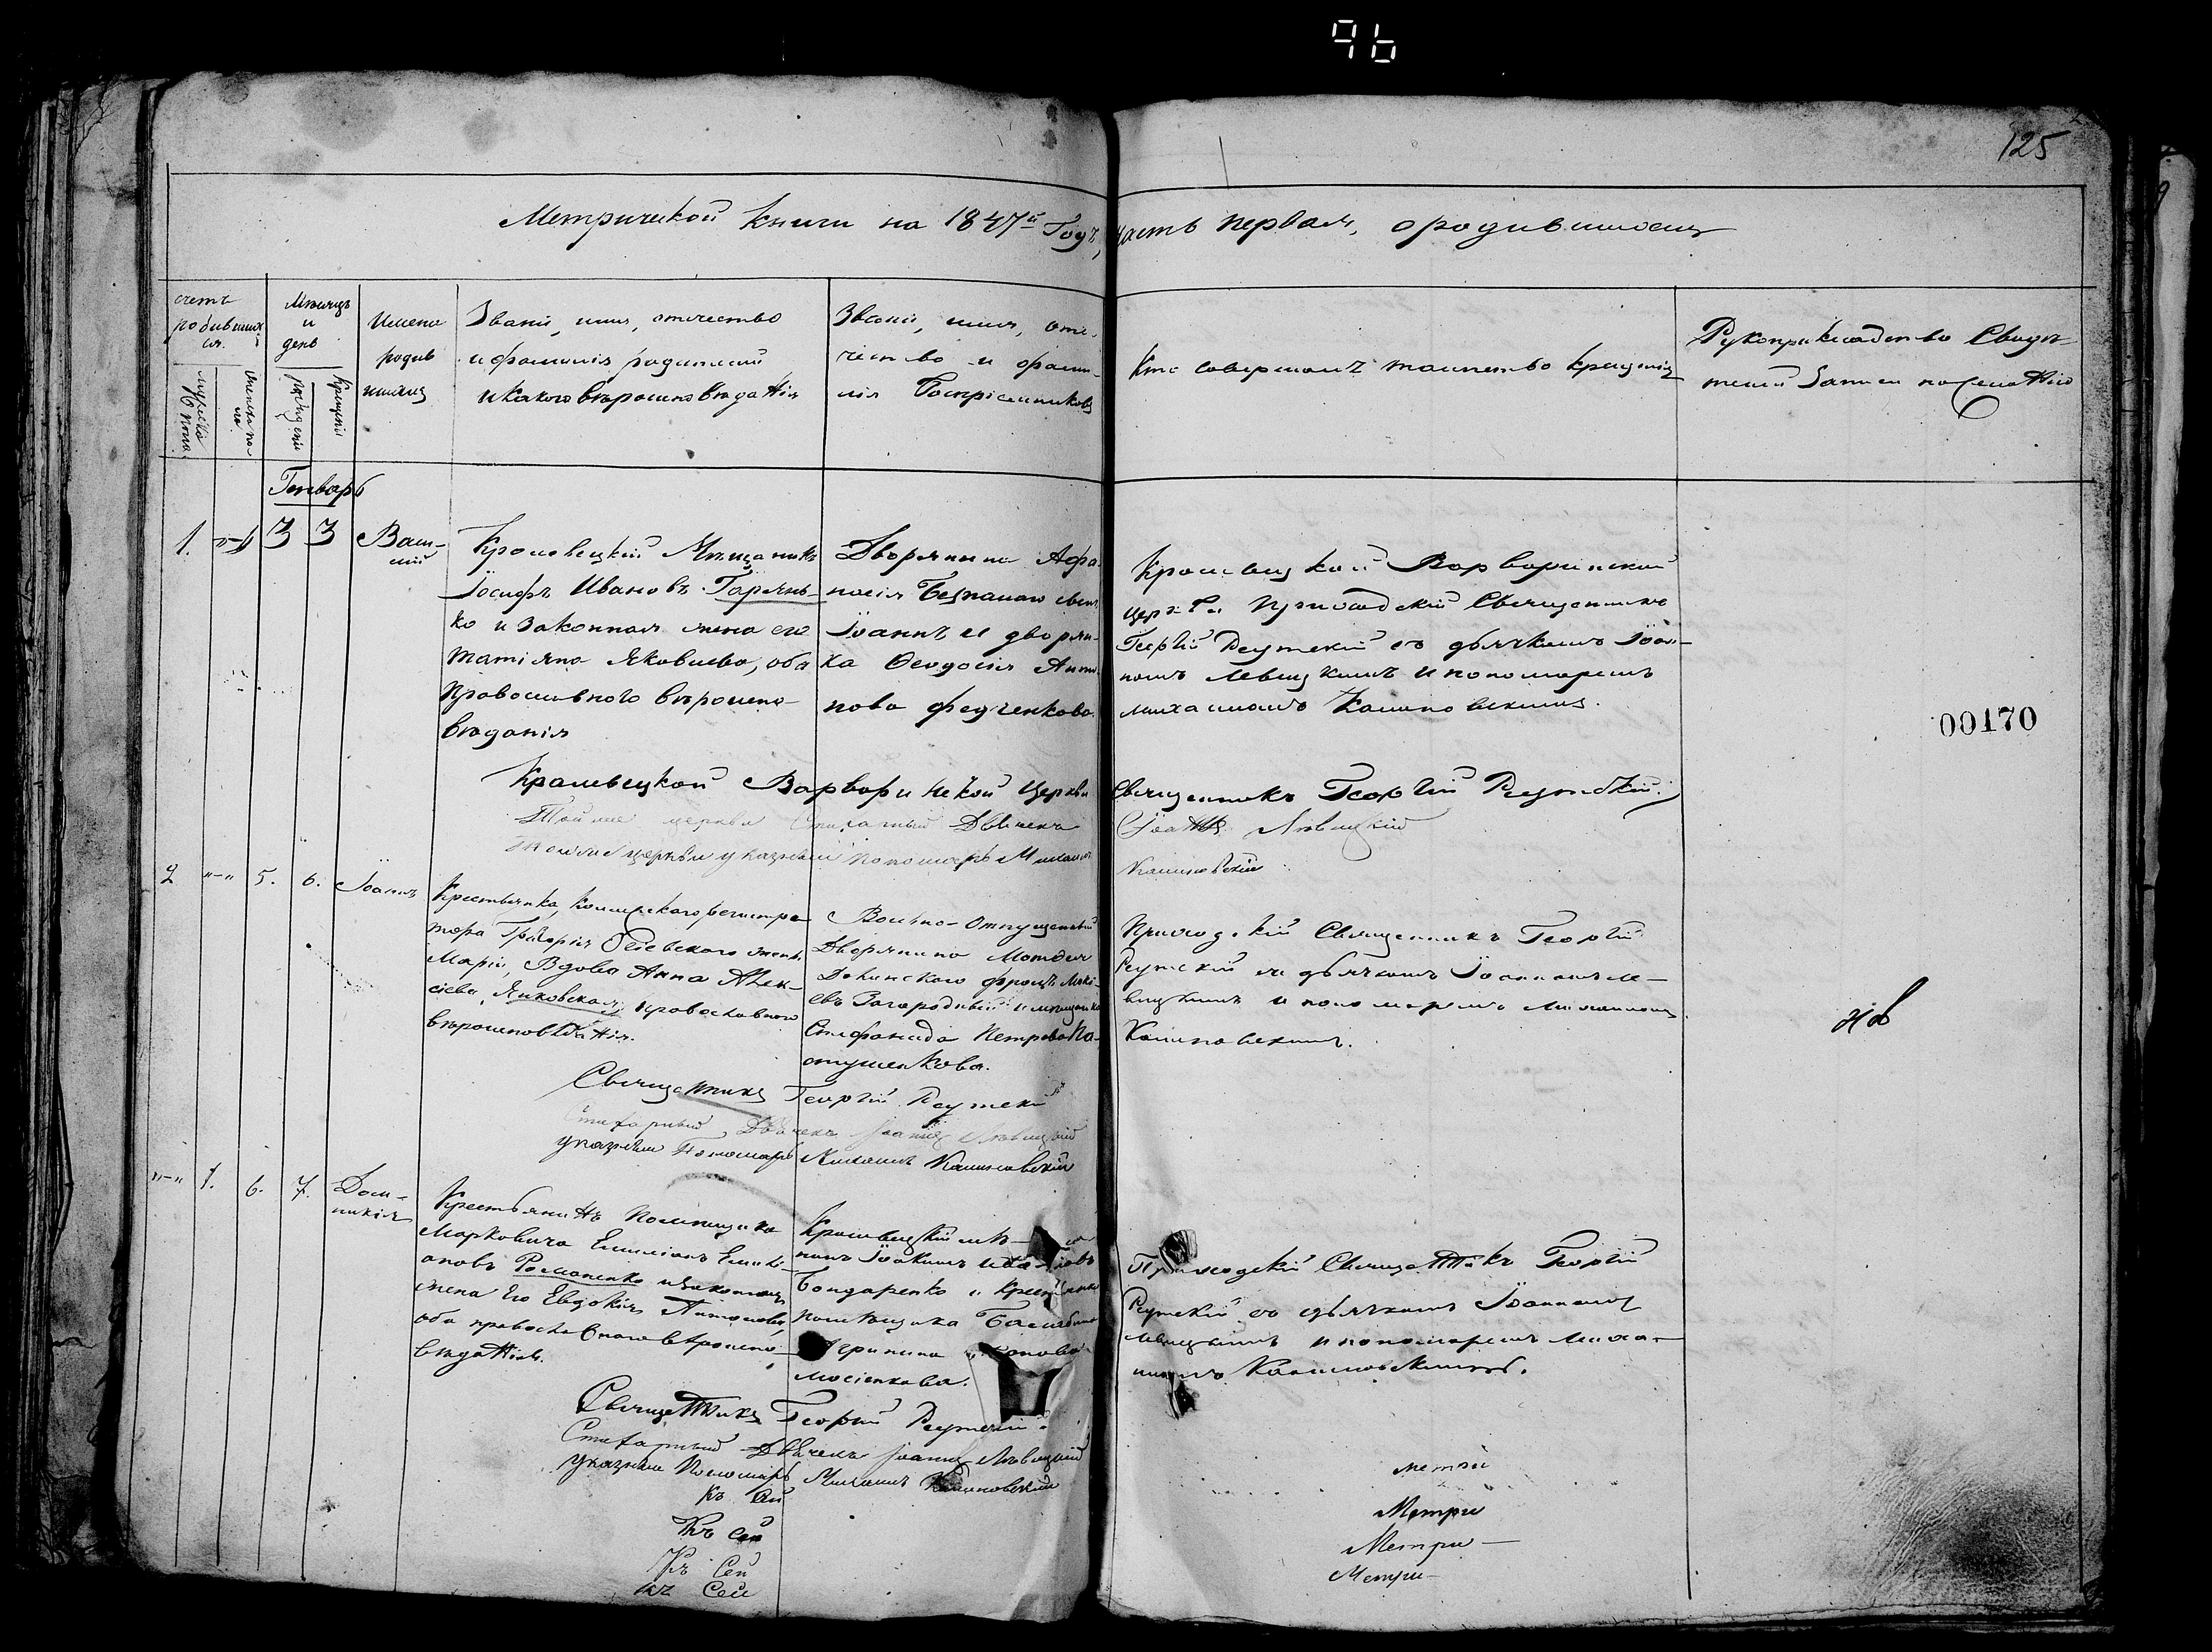 96
125
Метрической книги на 1847й Годъ, часть первая, о родившихся
счетъ родившихся.
мужеска пола
женска пола
Мѣсяцъ и день
рожденія
крещенія
Имена
родив
шихся
Званіе, имя, отчество
и фамилія родителей
и какого вѣроисповѣданія
Званіе, имя, отче-
чество и фами-
лія Воспріемниковъ
Кто совершалъ таинство крещенія
Рукоприкладство Свидѣ-
телей записи по желанію
Генварь
1. 1 3 3
Васи-
лій
Кролевецкій Мѣщанинъ
Іосифъ Ивановъ Горянь-
ко и законная жена его
Татіяна Яковлева, оба
Православного вѣроиспо-
вѣданія
Дворянина Афа-
насія
Іоаннъ и дворян-
ка Ѳеодосія Анти-
пова Федченкова.
Кролевецкой Варваринской
церкви Приходскій Священникъ
Георгій Реутскій съ дьячкомъ Іоан-
номъ Левицкимъ и пономаремъ
Михаиломъ Калиновскимъ.
00170
Кралевецкой Варваринской Церкви Священникъ Георгій Реутскій
Той же церкви Стихарный Дьячекъ Іоаннъ Левицкій
Той же церкви указный Пономарь Михаилъ Калиновскій
2 "-" 5. 6. Іоаннъ
Крестьянка, Колежскаго регистра-
тора Григорія жены
Маріи, Вдова Анна Алек-
сіева Янковская, православного
вѣроисповѣданія.
Вольно-Отпущенный
Дворянина
Загородный и мѣщанка
Стефанида Петрова По-
тушенкова.
Приходскій Священникъ Георгій
Реутскій съ дьячкомъ Іоанномъ Ле-
вицкимъ и пономаремъ Михаиломъ
Калиновскимъ.
Священникъ Георгій Реутскій
Стихарный Дьячекъ Іоаннъ Левицкій
указный Пономарь Михаилъ Калиновскій
"-" 1. 6. 7. Дом-
никія
Крестьянинъ помѣщика
Марковича Емиліанъ Емили-
ановъ Романенко и законная
жена Его Евдокія Антонова,
оба православного вѣроиспо-
вѣданія.
Кролевецкій мѣ-
нинъ Іоакимъ
Бондаренко и Крестьянка
помѣщика
мосіенкова.
Приходскій Священникъ Георгій
Реутскій съ дьячкомъ Іоанномъ
Левицкимъ и пономаремъ Миха-
иломъ Калиновскимъ.
Священникъ Георгій Реутскій
Стихарный Дьячекъ Іоаннъ Левицкій
Указный Пономарь Михаилъ Калиновскій
Къ Сей
Къ Сей
Къ Сей
Къ Сей
Метри
Метри
Метри—
Метри—